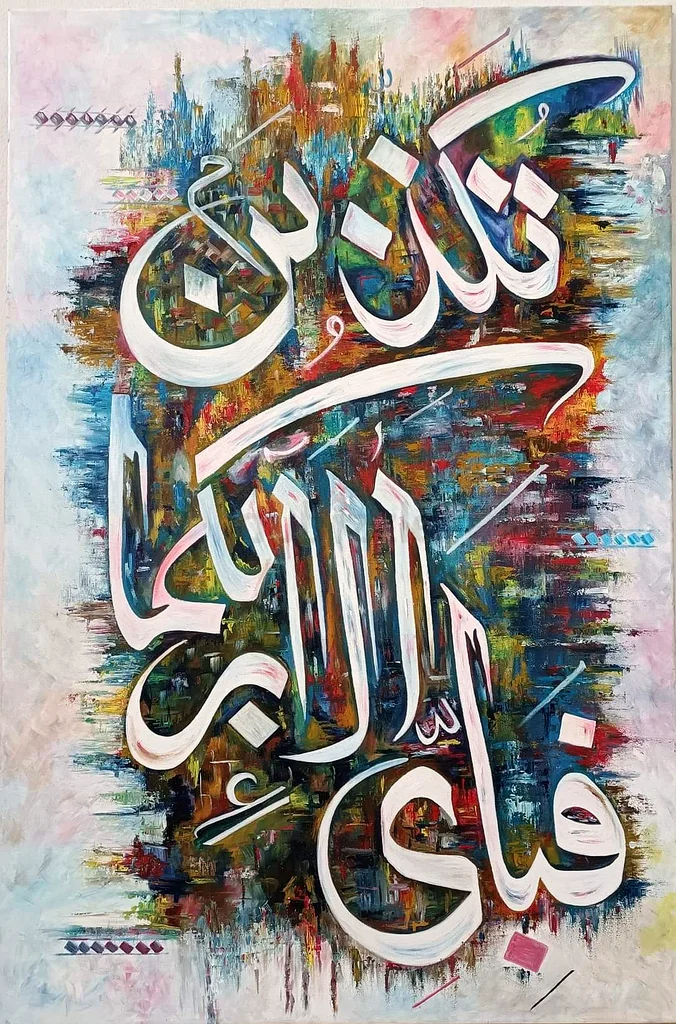 فبايّ
الاءِ ربكما
تكذبن